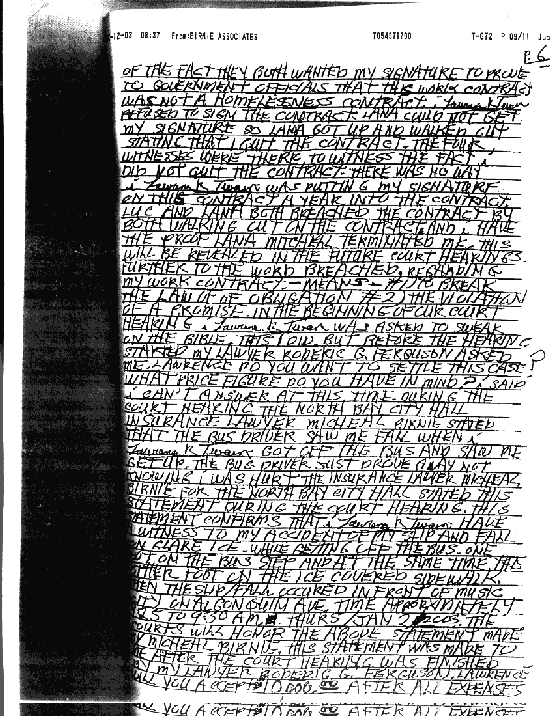 -12-02 08:37 From:BIRNIE ASSOCIATES 7054971700 T-072 P 09/11 Job
P. 6
OF THE FACT THEY BOTH WANTED MY SIGNATURE TO PROVE
TO GOVERNMENT OFFICIALS THAT THIS WORK CONTRACT
WAS NOT A HOMELESSNESS CONTRACT. i
REFUSED TO SIGN THE CONTRACT LANA COULD NOT GET
MY SIGNATURE SO LANA GOT UP AND WALKED OUT
STATING THAT I QUIT THE CONTRACT. THE FOUR
WITNESSES WERE THERE TO WITNESS THE FACT i
DID NOT QUIT THE CONTRACT. THERE WAS NO WAY
i WAS PUTTING MY SIGNATURE
ON THIS CONTRACT A YEAR INTO THE CONTRACT
LUC AND LANA BOTH BREACHED THE CONTRACT BY
BOTH WALKING OUT ON THE CONTRACT AND i HAVE
THE PROOF LANA MITCHELL TERMINATED ME. THIS
WILL BE REVEALED IN THE FUTURE COURT HEARINGS.
FURTHER TO THE WORD BREACHED, REGARDING
MY WORK CONTRACT - MEANS - #1) TO BREAK
THE LAW OF OBLIGATION #2) THE VIOLATION
OF A PROMISE. IN THE BEGINNING OF OUR COURT
HEARING i WAS ASKED TO SWEAR
ON THE BIBLE, THIS I DID. BUT BEFORE THE HEARING
STARTED MY LAWYER RODERIC G. FERGUSON ASKED
ME, LAWRENCE DO YOU WANT TO SETTLE THIS CASE?
WHAT PRICE FIGURE DO YOU HAVE IN MIND? i SAID
i CAN'T ANSWER AT THIS TIME. DURING THE
COURT HEARING THE NORTH BAY CITY HALL
INSURANCE LAWYER MICHEAL BIRNIE STATED
THAT THE BUS DRIVER SAW ME FALL WHEN i
GOT OFF THE BUS AND SAW ME
GET UP. THE BUS DRIVER JUST DROVE AWAY NOT
KNOWING i WAS HURT THE INSURANCE LAWYER MICHEAL
BIRNIE FOR THE NORTH BAY CITY HALL STATED THIS
STATEMENT DURING THE COURT HEARING. THIS
STATEMENT CONFIRMS THAT i HAVE
WITNESS TO MY ACCIDENT OF MY SLIP AND FALL
ON GLARE ICE WHILE GETTING OFF THE BUS. ONE
ON THE BUS STEP AND AT THE SAME TIME THE
OTHER FOOT ON THE ICE COVERED SIDEWALK
WHEN THE SLIP/FALL OCCURED IN FRONT OF MUSIC
CITY ON ALGONQUIN AVE. TIME APPROXIMATELY
TO 9:30 AM. THURS/JAN 2 2003. THE
COURTS WILL HONOR THE ABOVE STATEMENT MADE
BY MICHEAL BIRNIE. THIS STATEMENT WAS MADE TO
ME AFTER THE COURT HEARING WAS FINISHED
BY MY LAWYER RODERIC G. FERGUSON. LAWRENCE
WILL YOU ACCEPT $10,000.00 AFTER ALL EXPENSES
WILL YOU ACCEPT $10,000.00 AFTER ALL EXPENSES